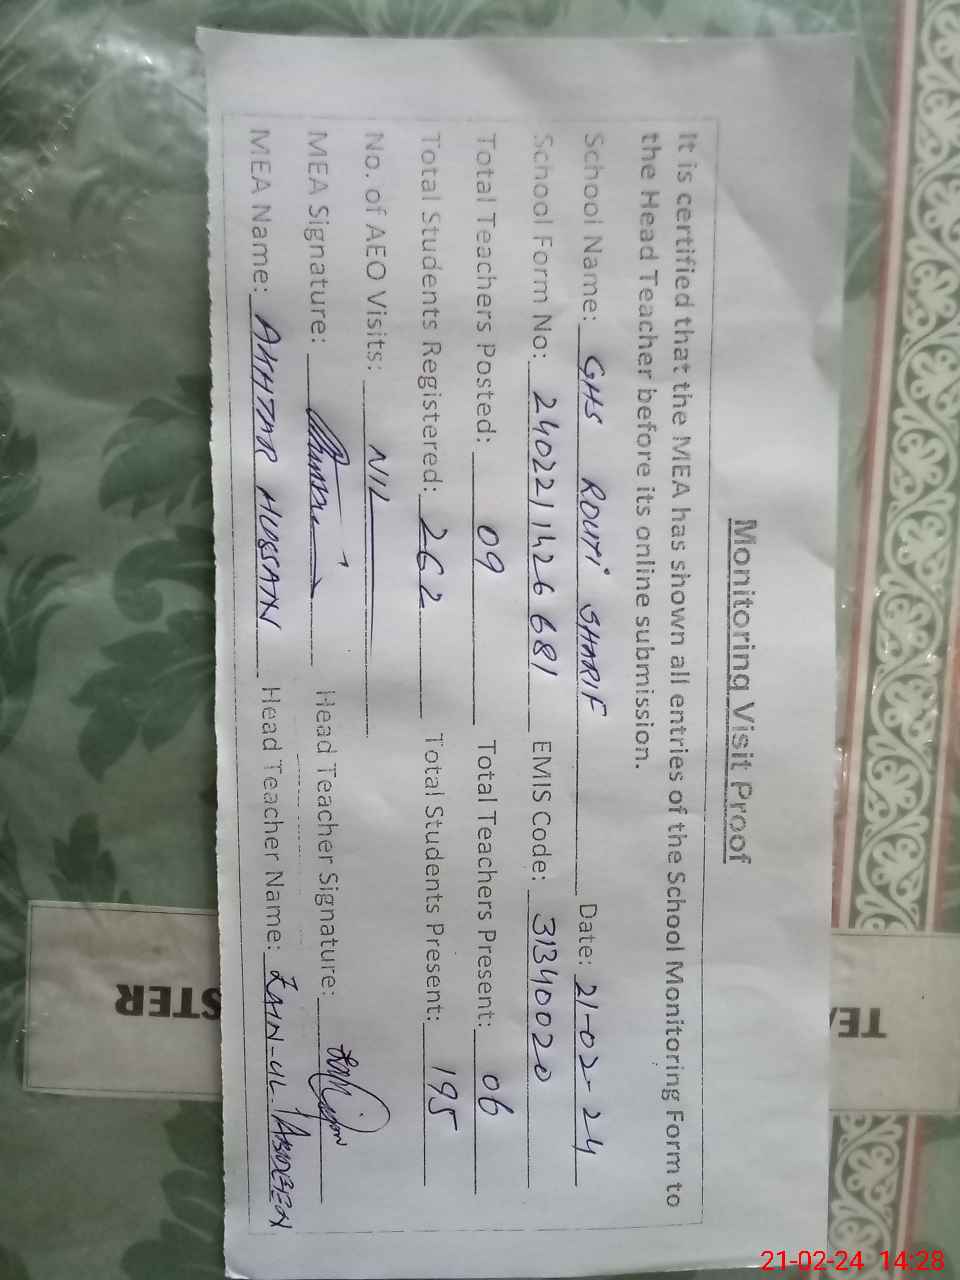 Monitoring Visit Proof
It is certified that the MEA has shown all entries of the School Monitoring Form to
the Head Teacher before its online submission.
School Name: GHS ROUTI SHARIF Date: 21-02-24
School Form No: 2402211426681 EMIS Code: 31340020
Total Teachers Posted: 09 Total Teachers Present: 06
Total Students Registered: 262 Total Students Present: 195
No. of AEO Visits: NIL
MEA Signature: Head Teacher Signature:
MEA Name: AKHTAR HUSSAIN Head Teacher Name: ZAIN-UL-ABIDEEN
STER
TEA
21-02-24 14:28